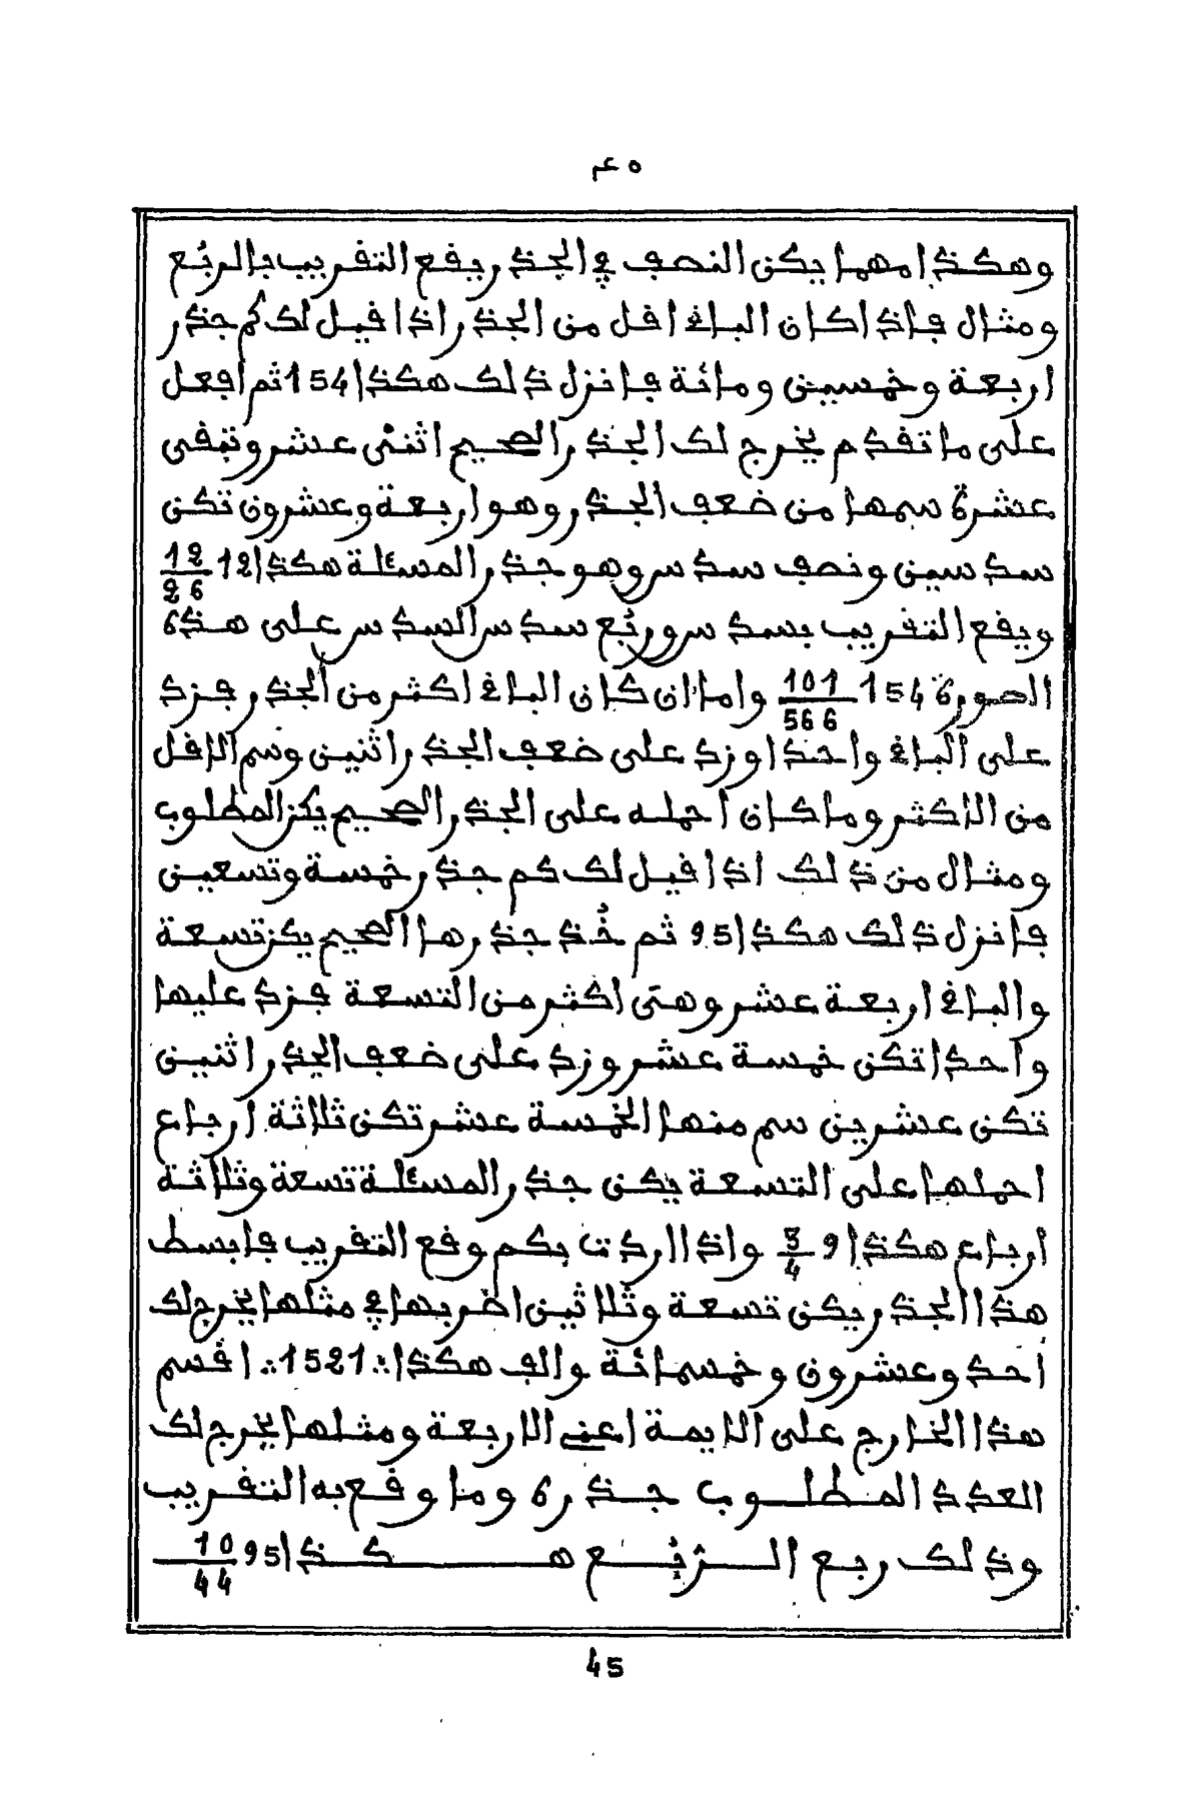 ٤٥
وهكذا مهما يكن النصف في الجذر يقع التقريب بالربع
ومثال فإذا كان الباق اقل من الجذر اذا قيل لك كم جذر
اربعة وخمسين ومائة فانزل ذلك هكذا 154 ثم افعل
على ما تقدم يخرج لك الجذر الصحيح اثنى عشر وتبقى
عشرة سمها من ضعف الجذر وهو اربعة وعشرون تكن
سدسين ونصف سدس وهو جذر المسئلة هكذا 12 12/26
ويقع التقريب بسدس وربع سدس السدس على هذه
الصورة 154 101/566 واما ان كان الباق اكثر من الجذر فزد
على الباق واحدا وزد على ضعف الجذر اثنين وسم الاقل
من الاكثر وما كان احمله على الجذر الصحيح يكن المطلوب
ومثال من ذلك اذا قيل لك كم جذر خمسة وتسعين
فانزل ذلك هكذا 95 ثم خُذ جذرها الصحيح يكن تسعة
والباق اربعة عشر وهى اكثر من التسعة فزد عليها
واحدا تكن خمسة عشر وزد على ضعف الجذر اثنين
تكن عشرين سم منها الخمسة عشر تكن ثلاثة ارباع
احملها على التسعة يكن جذر المسئلة تسعة وثلاثة
ارباع هكذا 9 3/4 واذا اردت بكم وقع التقريب فابسط
هذا الجذر يكن تسعة وثلاثين اضربها في مثلها يخرج لك
احد وعشرون وخمسمائة والف هكذا ∴1521∴ اقسم
هذا الخارج على الايمة اعنى الاربعة ومثلها يخرج لك
العدد المطلوب جذره وما وقع به التقريب
وذلك ربع الرُّبُع هكذا 95 10/44
45